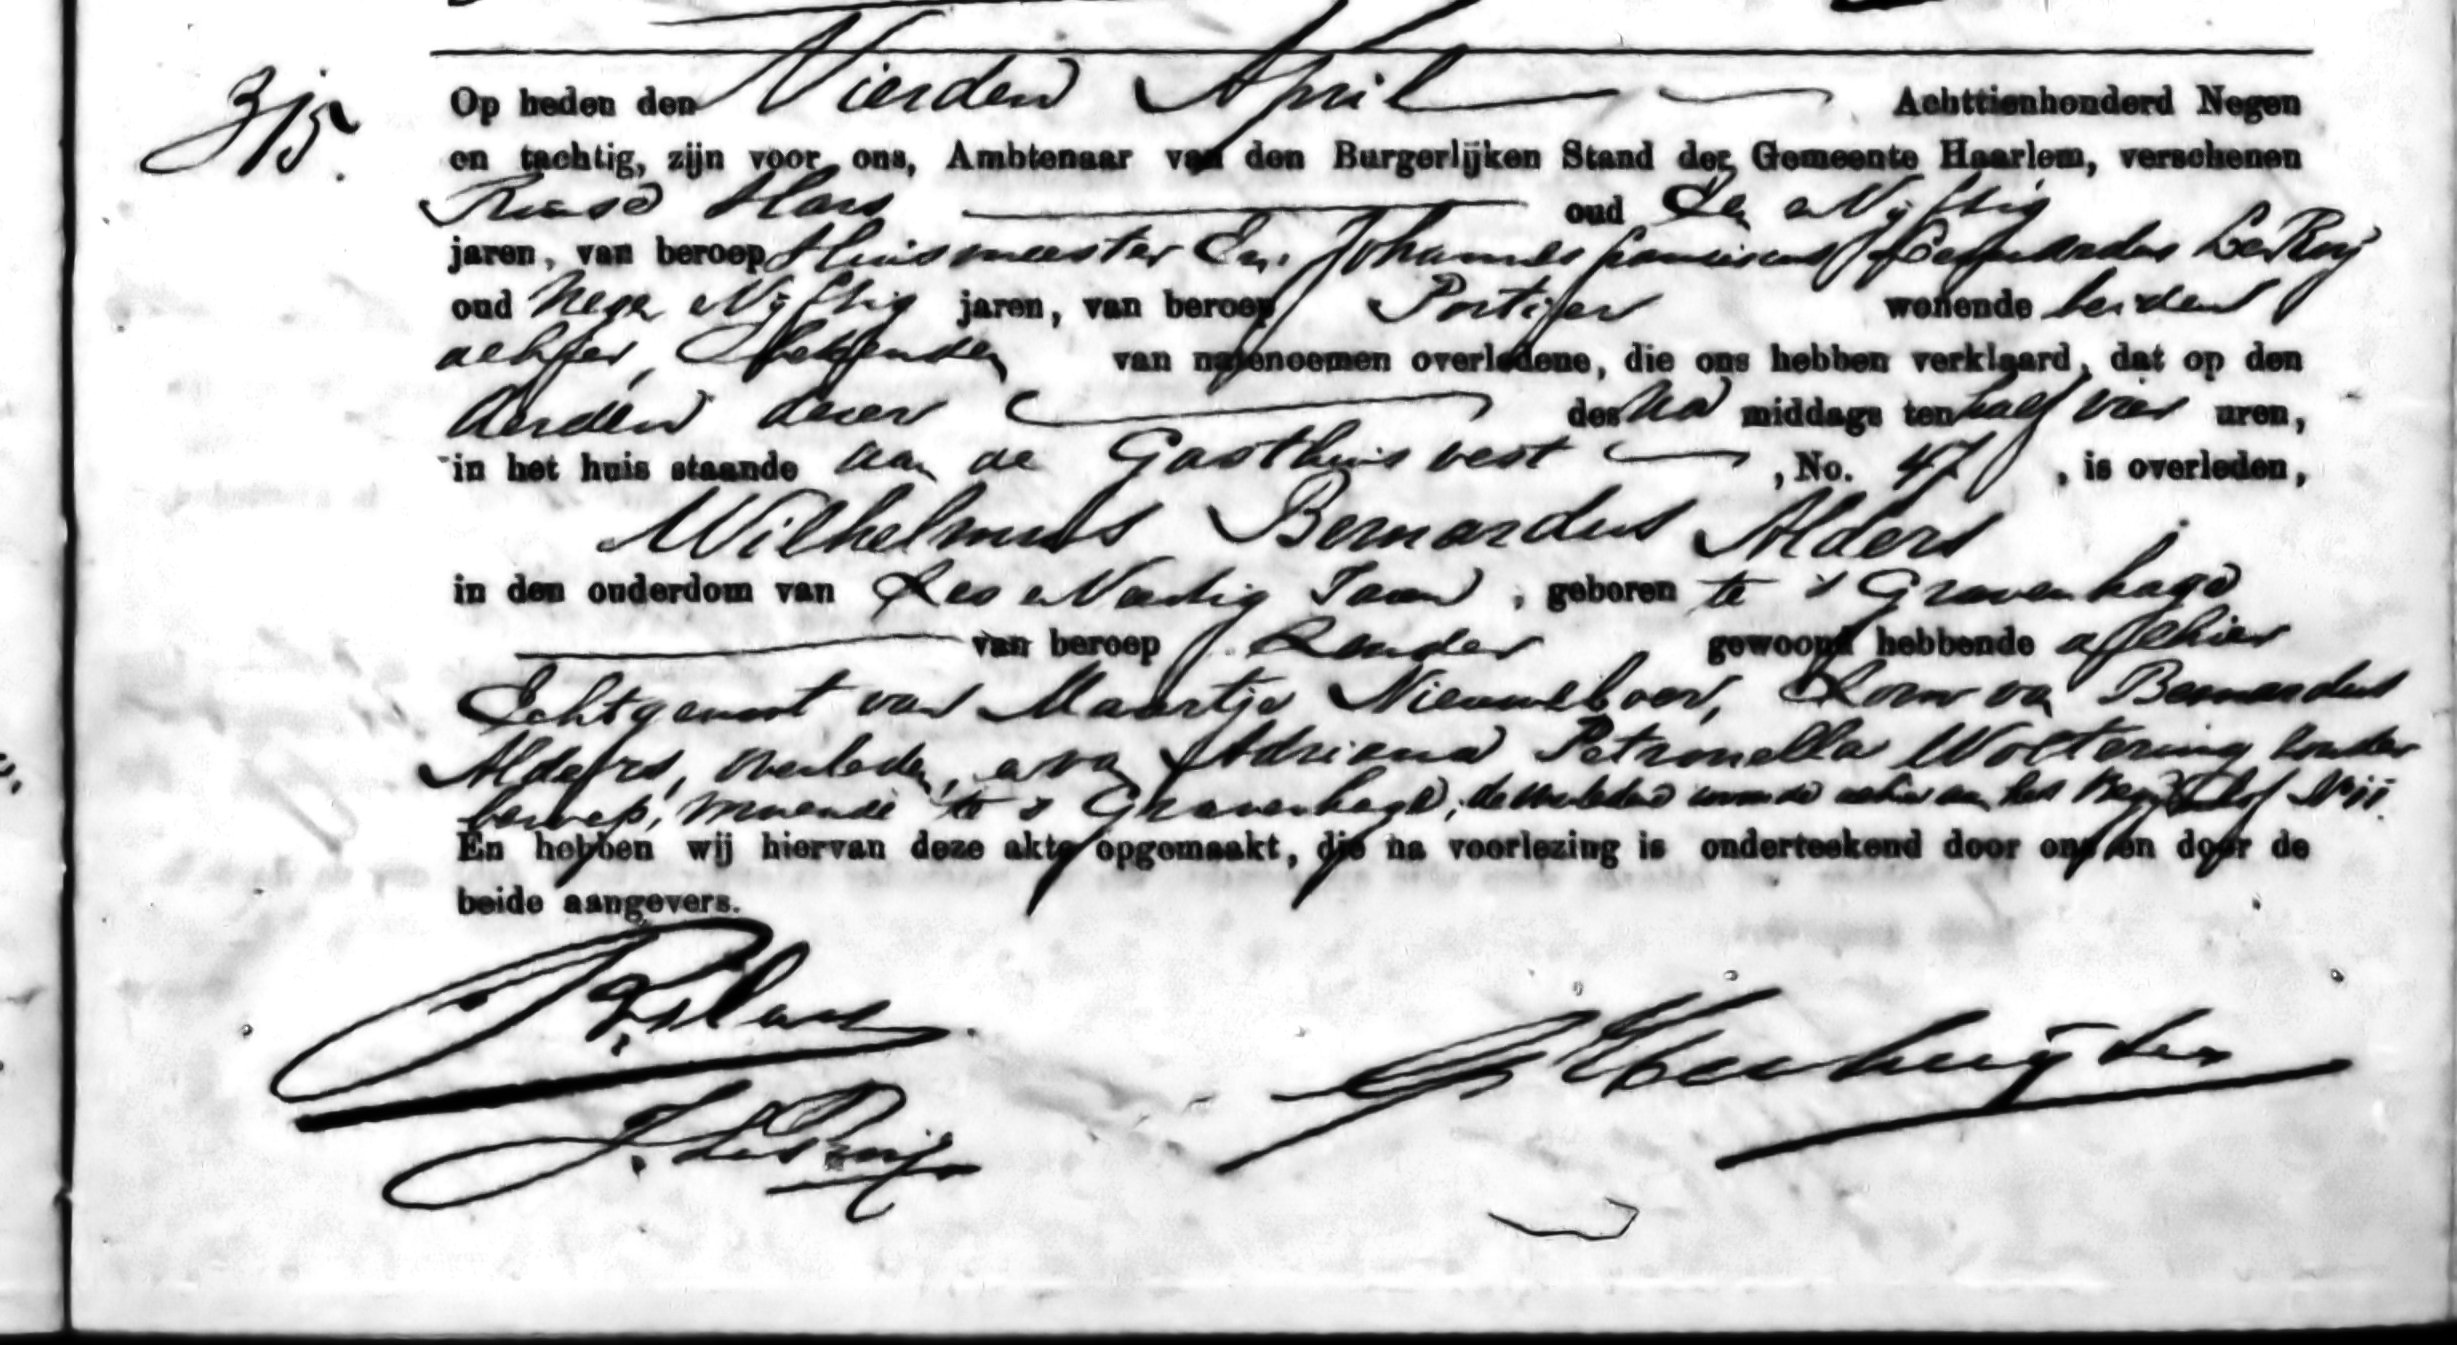 315.
Op heden den Vierden April Achttienhonderd Negen
en tachtig, zijn voor ons, Ambtenaar van den Burgerlijken Stand der Gemeente Haarlem, verschenen
oud Zes en Vijftig
jaren, van beroep Huismeester En Johannes Franciscus Leonardus Le Roij
oud Negen en Vijftig jaren, van beroep Portier wonende beiden
alhier, Bekenden van natenoemen overledene, die ons hebben verklaard, dat op den
derden dezer des Na middags ten half vier uren,
in het huis staande aan de Gasthuis vest , No. 47 , is overleden,
Wilhelmus Bernardus Alders
in den ouderdom van Zes en Veertig Jaar , geboren te 's Gravenhage
van beroep Zonder gewoond hebbende alhier
Echtgenoot van Maartje Nieuwboer, Zoon van Bernardus
Alders, overleden, en van Adriana Petronella Woltering zonder
beroep, wonende te 's Gravenhage, de overledene woonde alhier aan het
En hebben wij hiervan deze akte opgemaakt, die na voorlezing is onderteekend door ons en door de
beide aangevers.
J. Le Roij